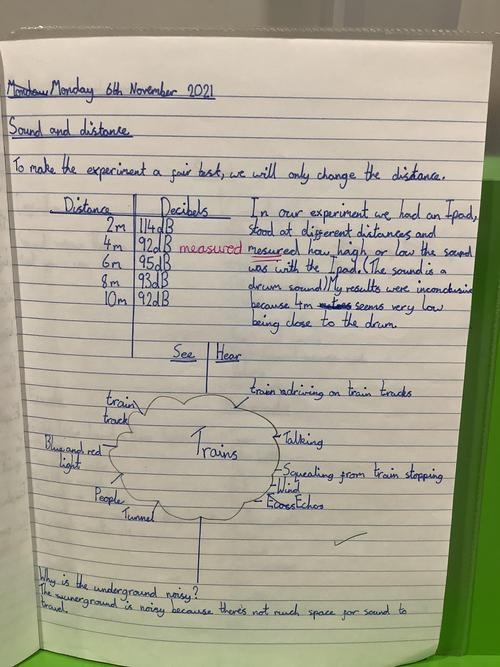 Monday Monday 6th November 2021
Sound and distance
To make the experiment a fair test, we will only change the distance.
Distance Decibels
2m 114dB
4m 92dB
6m 95dB
8m 93dB
10m 92dB
measured
In our experiment we had an Ipad,
stood at different distances and
mesured how high or low the sound
was with the Ipad. (The sound is a
drum sound) My results were inconclusive
because 4m seems very low
being close to the drum.
See Hear
train driving on train tracks
train
track
Trains
Talking
Blue and red
light
Squealing from train stopping
Wind
People
Ecoes Echos
Tunnel
Why is the underground noisy?
The underground is noisy because there's not much space for sound to
travel.